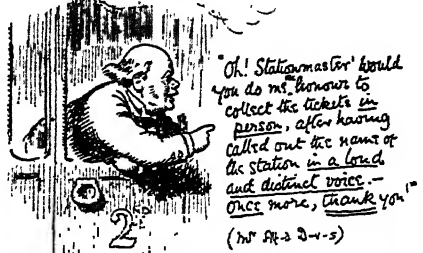 "Oh! Stationmaster! Would
you do me the honour to
collect the tickets in
person, after having
called out the name of
the station in a loud
and distinct voice.—
once more, thank you!"
2
(Mr D-v-s)